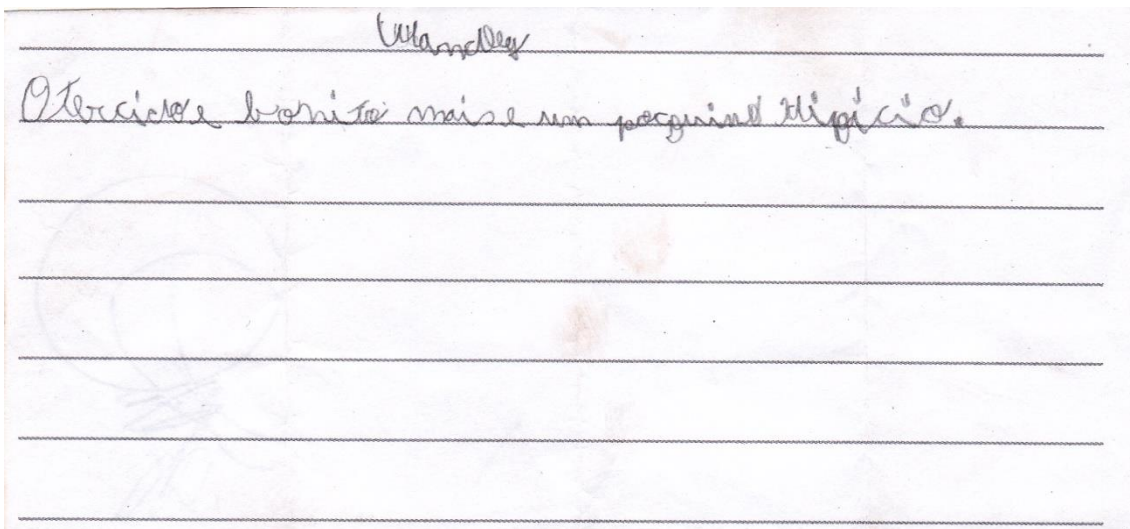 Wandley
O tercido e bonito mais e um pocquino dipicio.